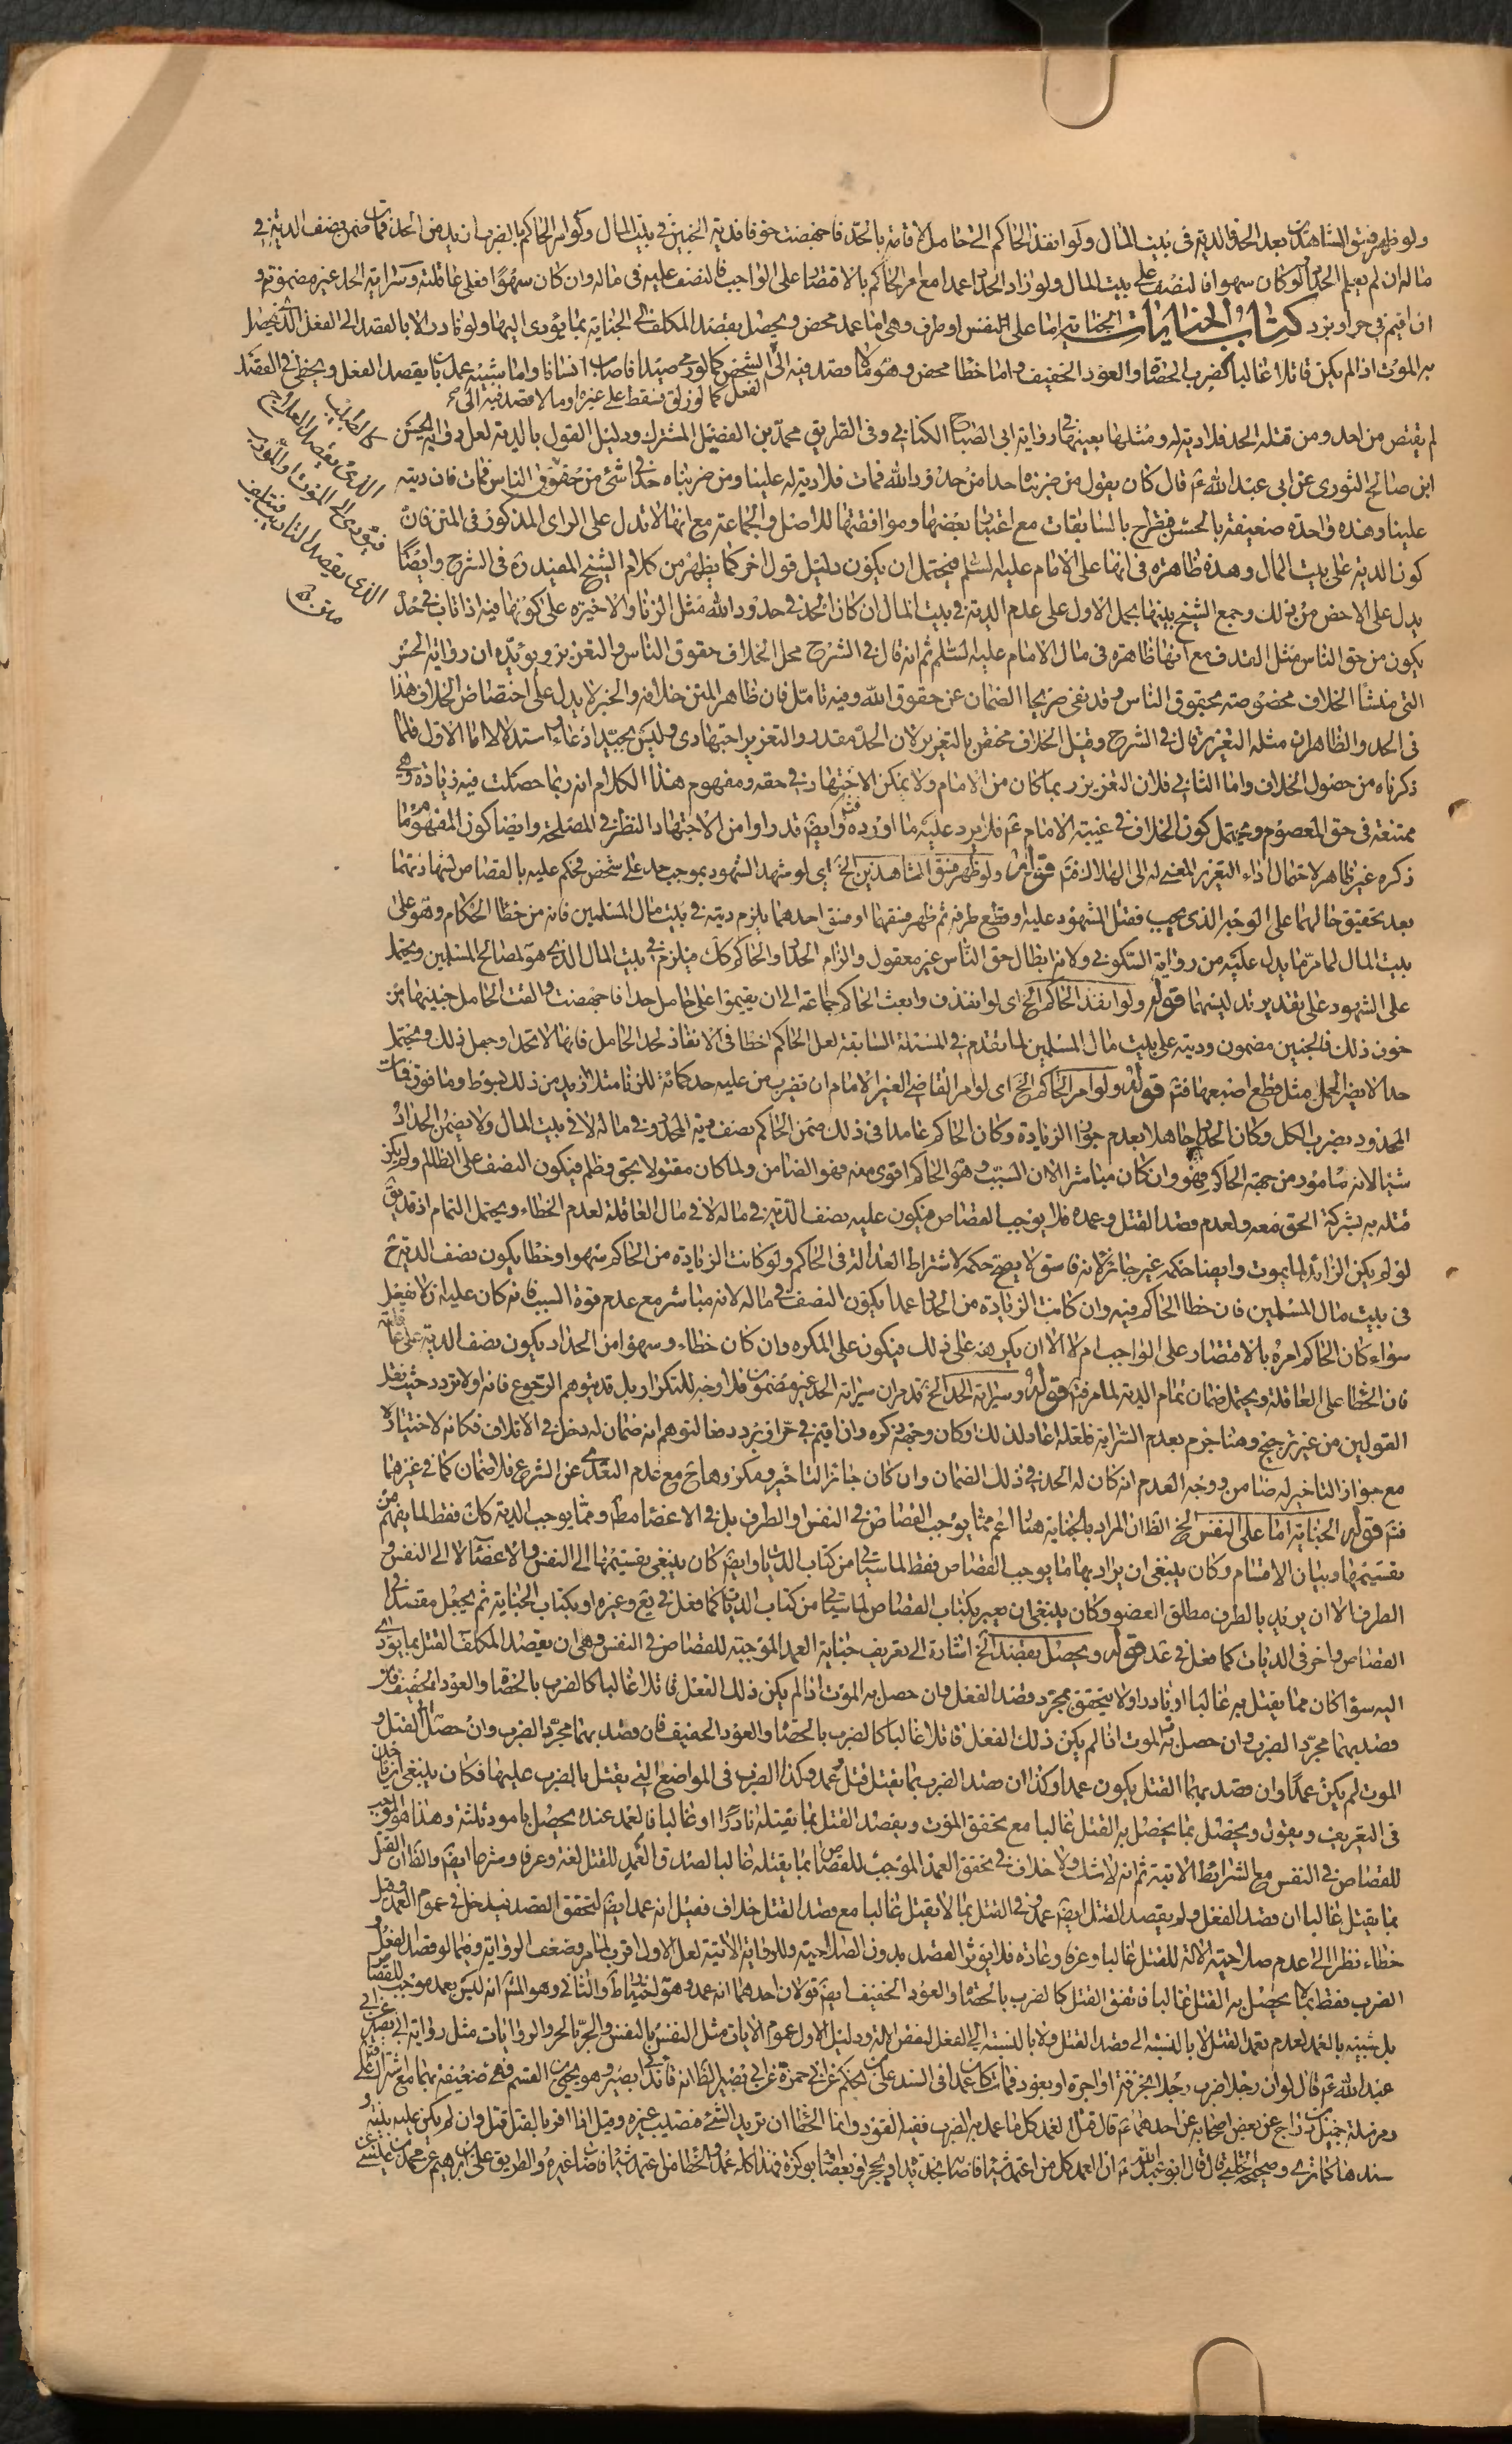 ولو ظهر فسق الشاهدين بعد الحد فالدية في بيت المال ولو انفذ الحاكم الى حامل لاقامة الحد فاجهضت خوفا فدية الجنين في بيت المال ولو امر الحاكم بالضرب ازيد من الحد فمات ضمن نصف الدية في
ماله ان لم يعلم الحداد ولو كان سهوا فالنصف على بيت المال ولو زاد الحداد عمدا مع امر الحاكم بالاقتصار على الواجب فالنصف عليه في ماله وان كان سهوا فعلى عاقلته وسراية الحد غير مضمونة و
ان اقيم في حر او برد كتاب الجنايات الجناية اما على النفس او طرف وهي اما عمد محض ويحصل بقصد المكلف الى الجناية بما يؤدى اليها ولو نادرا لا بالقصد الى الفعل الذي يحصل
به الموت اذا لم يكن قاتلا غالبا كضرب الحصاة والعود الخفيف واما خطأ محض وهو ما لا قصد فيه الى الشخص كما لو رمى صيدا فاصاب انسانا واما شبيه عمد بان يقصد الفعل ويخطي في القصد
الفعل كما لو زلق فسقط على غيره او ما لا قصد فيه الى
كالطبيب
الذي يقصد العلاج
فيؤدى الى الموت او المؤدب
الذي يقصد التاديب فيتلف
لم يقتص من احد ومن قتله الحد فلا دية له ومثلها بعينها في رواية ابي الصباح الكناني وفي الطريق محمد بن الفضيل المشترك ودليل القول بالدية لعل رواية الحسن
ابن صالح الثوري عن ابي عبد الله ع قال كان يقول من ضربناه حدا من حدود الله فمات فلا دية له علينا ومن ضربناه حدا في شئ من حقوق الناس فمات فان ديته
علينا وهذه واحدة ضعيفة بالحسن فتطرح بالسابقات مع اعتبار بعضها وموافقتها للاصل والجماعة مع انها لا تدل على الراى المذكور في المتن فان
كون الدية على بيت المال وهذه ظاهرة في انها على الامام عليه السلم فيحتمل ان يكون دليل قول اخر كما يظهر من كلام الشيخ المفيد ره في الشرح وايضا
يدل على الاخص من ذلك وجمع الشيخ بينهما بحمل الاول على عدم الدية في بيت المال ان كان الحد في حدود الله مثل الزنا والاخيرة على كونها فيه اذا كان في حد
يكون من حق الناس مثل القذف مع انها ظاهرة في مال الامام عليه السلم ثم انه قال في الشرح محل الخلاف حقوق الناس والتعزير ويؤيده ان رواية الحسن
التي منشأ الخلاف مخصوصة بحقوق الناس وقد نفى صريحا الضمان عن حقوق الله وفيه تامل فان ظاهر المتن خلافه والخبر لا يدل على اختصاص الخلاف هذا
في الحد والظاهر ان مثله التعزير قال في الشرح وقيل الخلاف مختص بالتعزير لان الحد مقدر والتعزير اجتهادي وليس بجيد ادعاء واستدلالا اما الاول فلما
ذكرناه من حصول الخلاف واما الثاني فلان التعزير ربما كان من الامام ولا يمكن الاجتهاد في حقه ومفهوم هذا الكلام انه ربما حصلت فيه زيادة وهي
ممتنعة في حق المعصوم ويحتمل كون الخلاف في غيبة الامام ع فلا يرد عليه ما اورده وايضا قدر او امن الاجتهاد النظر في المصلحة وايضا كون المفهوم ما
ذكره غير ظاهر لاحتمال اداء التعزير المعين له الى الهلاك فتم قوله ولو ظهر فسق الشاهدين الخ اي لو شهد الشهود بموجب حد على شخص فحكم عليه بالقصاص لشهادتهما
بعد تحقيق حالهما على الوجه الذي يجب فقتل المشهود عليه او قطع طرفه ثم ظهر فسقهما او فسق احدهما يلزم ديته في بيت مال المسلمين فانه من خطأ الحكام وهو على
بيت المال لما مر ما يدل عليه من رواية السكوني ولانه ابطال حق الناس غير معقول والزام الحداد والحاكم كك فيلزم في بيت المال الذي هو لمصالح المسلمين ويحتمل
على الشهود على تقدير تدليسهما قوله ولو انفذ الحاكم الخ اى لو انفذ وابعث الحاكم جماعة الى ان يقيموا على حامل حدا فاجهضت والقت الحامل جنينها من
خوف ذلك فالجنين مضمون وديته على بيت مال المسلمين لما تقدم في المسئلة السابقة لعل الحاكم اخطأ في الانفاذ لحد الحامل فانها لا تحد او جهل ذلك ويحتمل
حدا لا يضر الحمل مثل قطع اصبعها فتم قوله ولو امر الحاكم الخ اى لو امر القاضي الغير الامام ان تضرب من عليه حد كمائة للزنا مثلا ازيد من ذلك بسوط وما فوق فمات
المحدود بضرب الكل وكان الحداد جاهلا بعدم جواز الزيادة وكان الحاكم عامدا في ذلك ضمن الحاكم نصف دية المحدود في ماله لا في بيت المال ولا يضمن الحداد
شيئا لانه مامور من جهة الحاكم فهو وان كان مباشرا الا ان السبب وهو الحاكم اقوى منه فهو الضامن ولما كان مقتولا بحق وظلم فيكون النصف على الظالم ولم يكن
قتله به بشركة الحق معه ولعدم قصد القتل وعمده فلا يوجب القصاص فيكون عليه نصف الدية في ماله لا في مال العاقلة لعدم الخطاء ويحتمل التمام اذ قد يق
لو لم يكن الزائد لما يموت وايضا حكمه غير جائز لانه فاسق لا يصح حكمه لاشتراط العدالة في الحاكم ولو كانت الزيادة من الحاكم سهوا وخطا يكون نصف الدية ح
في بيت مال المسلمين فان خطا الحاكم فيه وان كانت الزيادة من الحداد عمدا يكون النصف في ماله لانه مباشر مع عدم قوة السبب فانه كان عليه ان لا يفعل
سواء كان الحاكم امره بالاقتصار على الواجب ام لا الا ان يكرهه على ذلك فيكون على المكره وان كان خطاء وسهوا من الحداد يكون نصف الدية على عاقلته
فان الخطا على العاقلة ويحتمل ضمان تمام الدية لما مر فتم قوله وسراية الحد الخ قد مر ان سراية الحد غير مضمون فلا وجه للتكرار بل قد يتوهم الرجوع فانه اولا تردد حيث نقل
القولين من غير ترجيح وهنا جزم بعدم السراية فلعله اعاد لذلك او كان وجهه ذكره وان اقيم في حر او برد دفعا لتوهم انه ضمان له دخل في الاتلاف فكانه لاختياره
مع جواز التاخير له ضامن ووجه العدم انه كان له الحد في ذلك الضمان وان كان جائز التاخير ومكروها ح مع عدم التعدي عن الشرع فلا ضمان كما في غيرهما
فتم قوله الجناية اما على النفس الخ الظ ان المراد بالجناية هنا اعم مما يوجب القصاص في النفس او الطرف بل في الاعضا مط ومما يوجب الدية كك فقط لما يفهم من
تقسيمها وبيان الاقسام وكان ينبغي ان يراد بها ما يوجب القصاص فقط لما سيأتي من كتاب الديات وايضا كان ينبغي تقسيمها الى النفس والاعضاء لا الى النفس و
الطرف الا ان يريد بالطرف مطلق العضو وكان ينبغي ان يعبر بكتاب القصاص لما سياتي من كتاب الديات كما فعل في يع وغيره او بكتاب الجناية ثم يجعل مقصدا في
القصاص واخر في الديات كما فعل في عد قوله ويحصل بقصد الخ اشارة الى تعريف جناية العمد الموجبة للقصاص في النفس وهي ان يقصد المكلف القتل بما يؤدى
اليه سواء كان مما يقتل به غالبا او نادرا ولا يتحقق بمجرد قصد الفعل وان حصل به الموت اذا لم يكن ذلك الفعل قاتلا غالبا كالضرب بالحصا والعود الخفيف فان
قصد بهما مجرد الضرب وان حصل به الموت اذا لم يكن ذلك الفعل قاتلا غالبا كالضرب بالحصا والعود الخفيف فان قصد بهما مجرد الضرب وان حصل القتل و
الموت لم يكن عمدا وان قصد بهما القتل يكون عمدا وكذا ان قصد الضرب بما يقتل قتل وعمد وكذا الضرب في المواضع التي يقتل بالضرب عليها فكان ينبغي
في التعريف ويقول ويحصل بما يحصل به القتل غالبا مع تحقق الموت وبقصد القتل بما يقتله نادرا او غالبا فالعمد عنده يحصل بامور ثلثة وهذا هو الموجب
للقصاص في النفس مع الشرائط الاتية ثم انه لا شك ولا خلاف في تحقق العمد الموجب للقصاص بما يقتله غالبا لصدق العمد للقتل لغة وعرفا وشرعا ايضا والظ ان القتل
بما يقتل غالبا ان قصد الفعل ولم يقصد القتل ايضا عمد وفي القتل بما لا يقتل غالبا مع قصد القتل خلاف فقيل انه عمد ايضا لتحقق القصد فيدخل في عموم العمد وقيل
خطاء نظرا الى عدم صلاحية الالة للقتل غالبا وعرفا وعادة فلا يؤثر القصد بدون الصلاحية وللرواية الاتية لعل الاول اقرب لما مر وضعف الرواية وفيما لو قصد الفعل
الضرب فقط بما لا يحصل به القتل غالبا فاتفق القتل كالضرب بالحصا والعود الخفيف ايضا قولان احدهما انه عمد وهو احتياط والثاني وهو المشهور انه ليس بعمد موجب للقصاص
بل شبيه بالعمد لعدم تعمد القتل لا بالنسبة الى قصد القتل ولا بالنسبة الى الفعل لنقص الالة ودليل الاول عموم الايات مثل النفس بالنفس والحر بالحر والروايات مثل رواية ابي بصير عن ابي
عبد الله ع قال لو ان رجلا ضرب رجلا بخزفة او اجرة او بعود فمات كان عمدا في السند علي بن الحكم عن ابي حمزة عن ابي بصير الظ انه قائد ابي بصير وهو يحيى بن القسم فهي ضعيفة بهما مع اشتراك علي
ومرسلة جميل بن دراج عن بعض اصحابه عن احدهما ع قال قتل العمد كل ما عمد به الضرب ففيه القود وانما الخطأ ان تريد الشئ فتصيب غيره وقيل اذا اقر بالقتل قتل وان لم يكن عليه بينة و
سندها كما ترى وصحيحة الحلبي قال قال ابو عبد الله ع ان العمد كل من اعتمد شيئا فاصابه بحديدة او بحجر او بعصا او بوكزة فهذا كله عمد والخطأ من اعتمد شيئا فاصاب غيره والطريق علي بن ابرهيم عن محمد بن عيسى